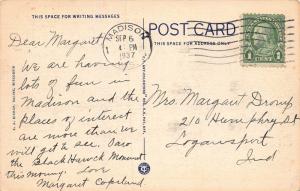 THIS SPACE FOR WRITING MESSAGES
POST CARD
THIS SPACE FOR ADDRESS ONLY
MADISON
SEP 6
4-PM
1937
1 CENT 1
Dear Margaret,
We are having
lots of fun in
Madison and the
places of interest
are more than we
will get to see. Saw
the Black Hawck Monument
this morning. Love
Margaret Copeland
Mrs. Margaret
210 Humphrey St
Logansport
Ind